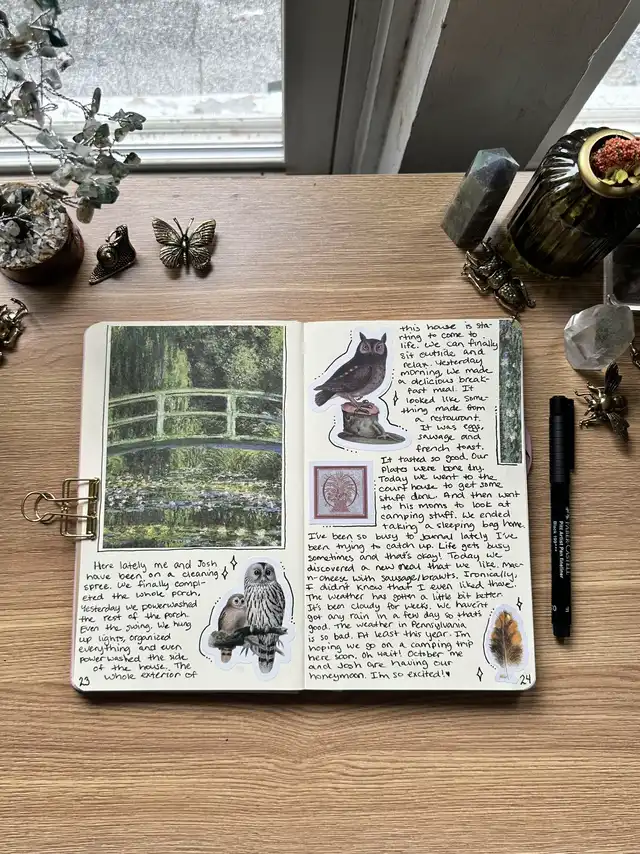 Here lately me and Josh
have been on a cleaning
spree. We finally compl-
eted the whole porch.
Yesterday we powerwashed
the rest of the porch.
Even the swing. We hung
up lights, organized
everything and even
powerwashed the side
of the house. The
whole exterior of
23
this house is sta-
rting to come to
life. We can finally
sit outside and
relax. Yesterday
morning, we made
a delicious break-
fast meal. It
looked like some-
thing made from
a restaurant.
It was eggs,
sausage and
french toast.
It tasted so good. Our
plates were bone dry.
Today we went to the
court house to get some
stuff done. And then went
to his moms to look at
camping stuff. We ended
taking a sleeping bag home.
I've been so busy to journal lately I've
been trying to catch up. Life gets busy
sometimes and that's okay! Today we
discovered a new meal that we like. mac-
n-cheese with sausage/brawts. Ironically,
I didn't know that I even liked those.
The weather has gotten a little bit better.
It's been cloudy for weeks. We haven't
got any rain in a few day so thats
good. The weather in Pennsylvania
is so bad. At least this year. I'm
hoping we go on a camping trip
here soon. Oh wait! October me
and Josh are having our
honeymoon. I'm so excited!♥
24
FABER-CASTELL
Pitt Artist Pen Fineliner
Black 199